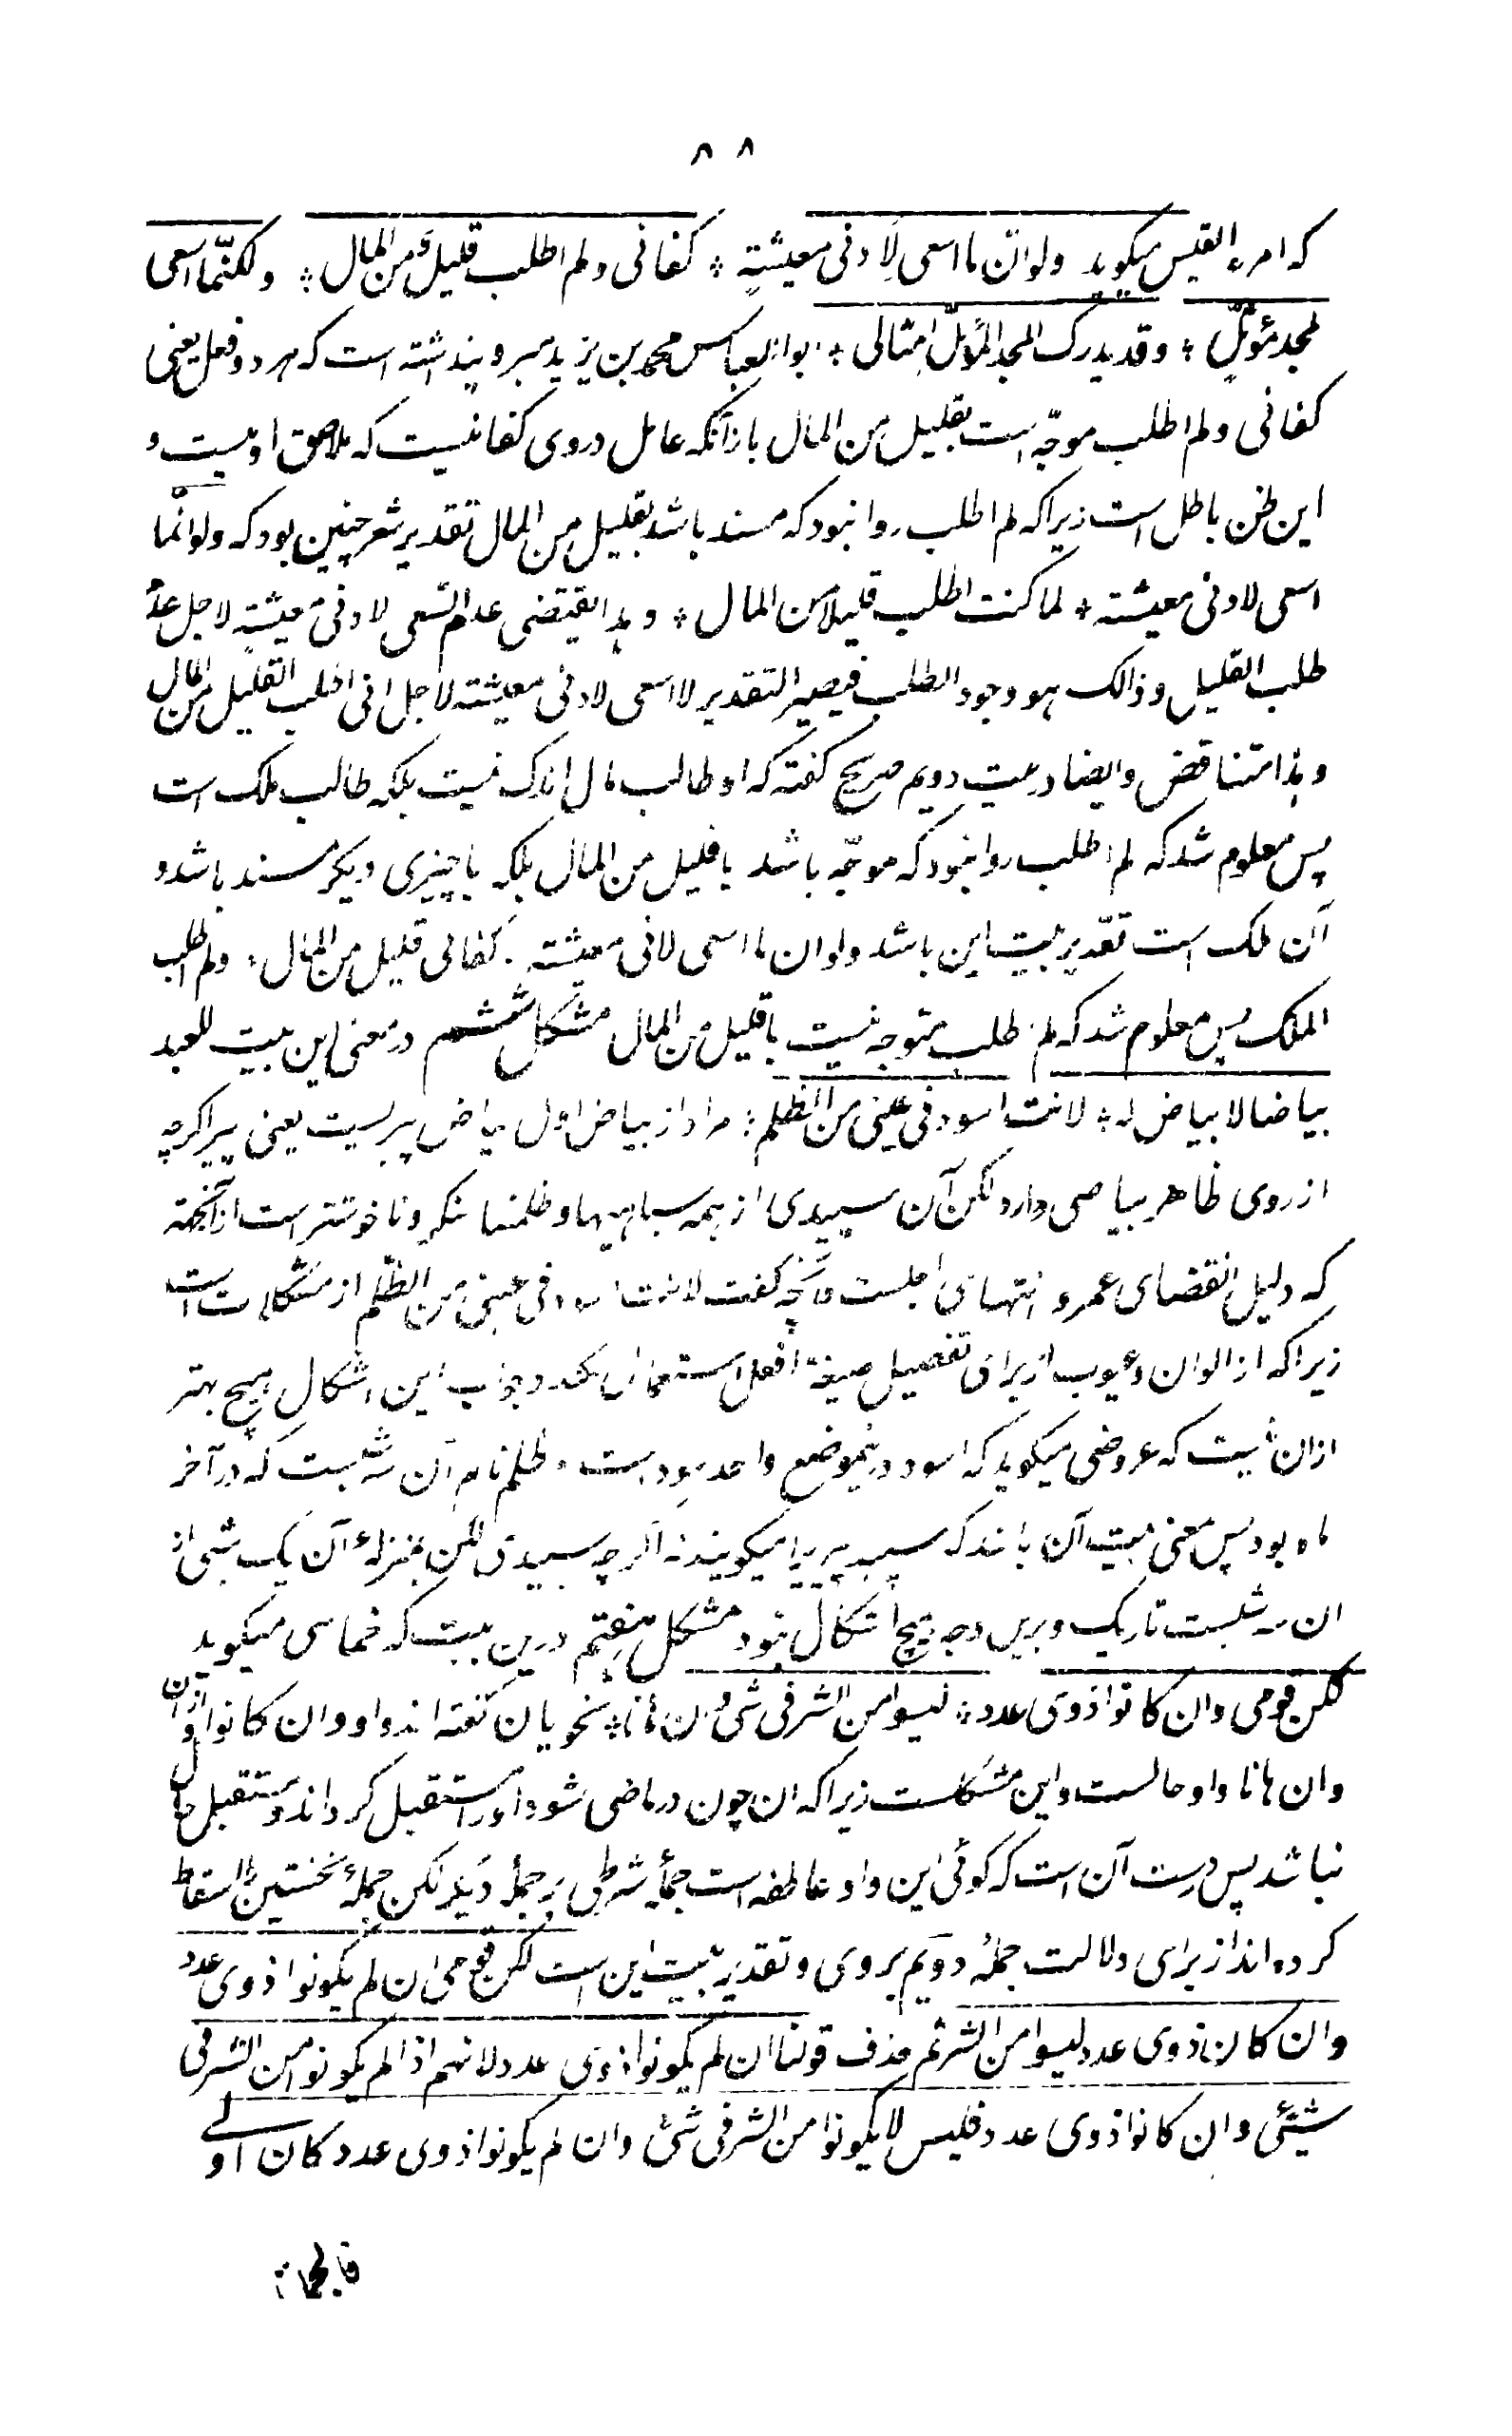 ۸۸
که امرء القیس میکوید ولو انّ ما اسعی لِادنی معیشةٍ ؞ کفانی ولم اطلب قلیلٌ من المال ؞ ولکنّما اسعی
لمجد مؤثّلٍ ؞ وقد یدرک المجد المؤثّل امثالی ؞ ابوالعباس محمد بن یزید مبرد پنداشته است که هر دو فعل یعنی
کفانی ولم اطلب موجّه است بقلیل من المال بازآنکه عامل دروی کفا نیست که ملاصق او نیست و
این ظن باطل است زیرا که لم اطلب روا نبود که مسند باشد بقلیل من المال تقدیر شعر چنین بود که ولو انّما
اسعی لادنی معیشته ؞ لما کنت اطلب قلیلا من المال ؞ و هذا یقتضی عدم السّعی لادنی معیشةٍ لاجل عدم
طلب القلیل و ذالک هو وجود الطلب فیصیر التقدیر لا اسعی لادنی معیشته لاجل انی اطلب القلیل من المال
و هذا متناقض و ایضا در بیت دویم صریح کفته که او طالب مال اندک نیست بلکه طالب ملک است
پس معلوم شد که لم اطلب روا نبود که موجّه باشد با قلیل من المال بلکه با چیزی دیکر مسند باشد و
آن ملک است تقدیر بیت این باشد ولو ان ما اسعی لادنی معیشته ؞ کفانی قلیل من المال ؞ ولم اطلب
الملک پس معلوم شد که لم اطلب متوجه نیست با قلیل من المال مشکل ششم در معنی این بیت للعبد
بیاضا لا بیاض له ؞ لانت اسود فی عینی من الظلم ؞ مراد از بیاض اول بیاض پیریست یعنی پیر اکرچه
از روی ظاهر بیاضی دارد لکن آن سپیدی از همه سیاهیها و ظلمتها منکر و ناخوشتر است از آنجهته
که دلیل انقضای عمر و انتهای اجلست و آنچه کفت لانت اسود فی عینی من الظلم از مشکلات است
زیرا که از الوان و عیوب از برای تفضیل صیغهٔ افعل استعمال نکنند و جواب این اشکال هیچ بهتر
ازان نیست که عروضی میکوید که اسود درینموضع واحد سود است و ظلم نام آن سه شبست که در آخر
ماه بود پس معنی بیت آن باشد که سپید پیر را میکویند نه اکرچه سپیدی لکن بمنزلهٔ آن یک شبی از
ان سه شبست تاریک و برین وجه هیچ اشکال نبود مشکل هفتم درین بیت که خماسی میکوید
لکن قومی وان کانوا ذوی عدد ؞ لیسوا من الشر فی شئ و ان هانا ؞ نحویان کفته اند واو وان کانوا و او از ان
وان هانا واو حالست و این مشکلست زیرا که ان چون در ماضی شود او را مستقبل کرداند و مستقبل حال
نباشد پس درست آن است که کوئی این واو عاطفه است جملهٔ شرطی بر جملهٔ دیکر لکن جملهٔ نخستین را اسقاط
کرده اند از برای دلالت جملهٔ دویم بروی و تقدیر بیت این است لکن قومی ان لم یکونوا ذوی عدد
وان کان ذوی عدد لیسوا من الشر ثم حذف قولنا ان لم یکونوا ذوی عدد لانهم اذا لم یکونوا من الشر فی
شیئی وان کانوا ذوی عدد فلیس لا یکونوا من الشر فی شئ وان لم یکونوا ذوی عدد کان اولے